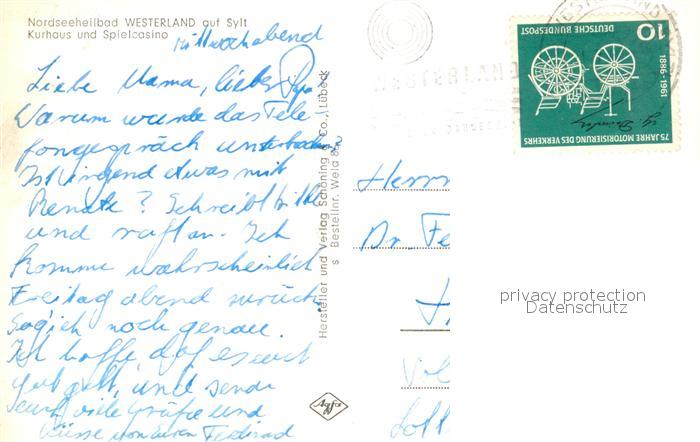 Nordseeheilbad WESTERLAND auf Sylt
Kurhaus und Spielcasino
Mittwochabend
Liebe Mama, lieber Papa
Warum wurde das Tele-
fongespräch unterbrochen
Ist irgend etwas mit
Renate? Schreibt bitte
und ruft an. Ich
komme wahrscheinlich
Freitag abend zurück.
Sag ich noch genau.
Ich hoffe, daß es euch
gut geht, und sende
euch viele Grüße und
Küsse von Euren Ferdinand
Hersteller und Verlag Schöning & Co., Lübeck
Bestellnr. Weld
Herrn
Dr. Fe
Agfa
DEUTSCHE BUNDESPOST
10
1886-1961
75 JAHRE MOTORISIERUNG DES VERKEHRS
privacy protection
Datenschutz